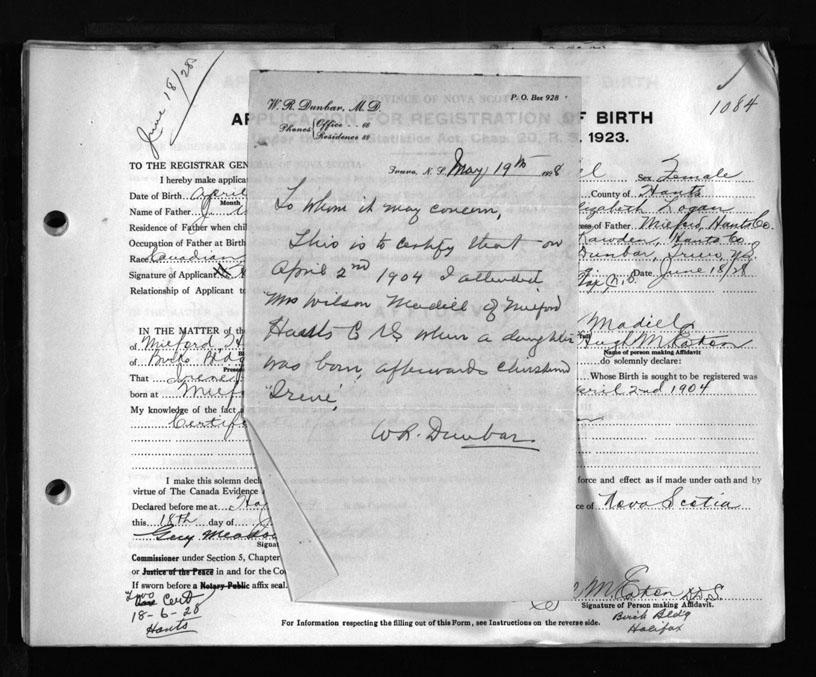 June 18/28
1084
W. R. Dunbar, M. D.
P. O. Box 928
Phones Office
Residence
Truro, N. S. May 19th 1928
To whom it may concern,
This is to certify that on
April 2nd 1904 I attended
Mrs Wilson Madill of Milford
Hants Co NS when a daughter
was born, afterwards christened
'Irene',
W R. Dunbar
AP OF BIRTH
1923.
TO THE REGISTRAR GEN
I hereby make applicat
Sex Female
Date of Birth April
Month
County of Hants
Name of Father J
lizabeth Logan
Residence of Father when chil
ess of Father Milford, Hants Co.
Occupation of Father at Birth
Rawdon, Hants Co.
Race Canadian
Dunbar, Truro, N.S.
Signature of Applicant
Date June 18/28
Relationship of Applicant to
IN THE MATTER of th
Madill
of Milford
Hugh M. Eaton
of Birks Bldg
Name of person making Affidavit
do solemnly declare:
That Irene
Whose Birth is sought to be registered was
born at Milf
pril 2nd 1904
My knowledge of the fact a
Certif
I make this solemn decl
force and effect as if made under oath and by
virtue of The Canada Evidence A
Declared before me at Ha
ce of Nova Scotia
this 18th day of J
Signat
Commissioner under Section 5, Chapter
or Justice of the Peace in and for the Co
If sworn before a Notary Public affix seal.
M. Eaton D.D.S.
Signature of Person making Affidavit.
Cert
18-6-28
Hants
Birks Bldg
Halifax
For Information respecting the filling out of this Form, see Instructions on the reverse side.